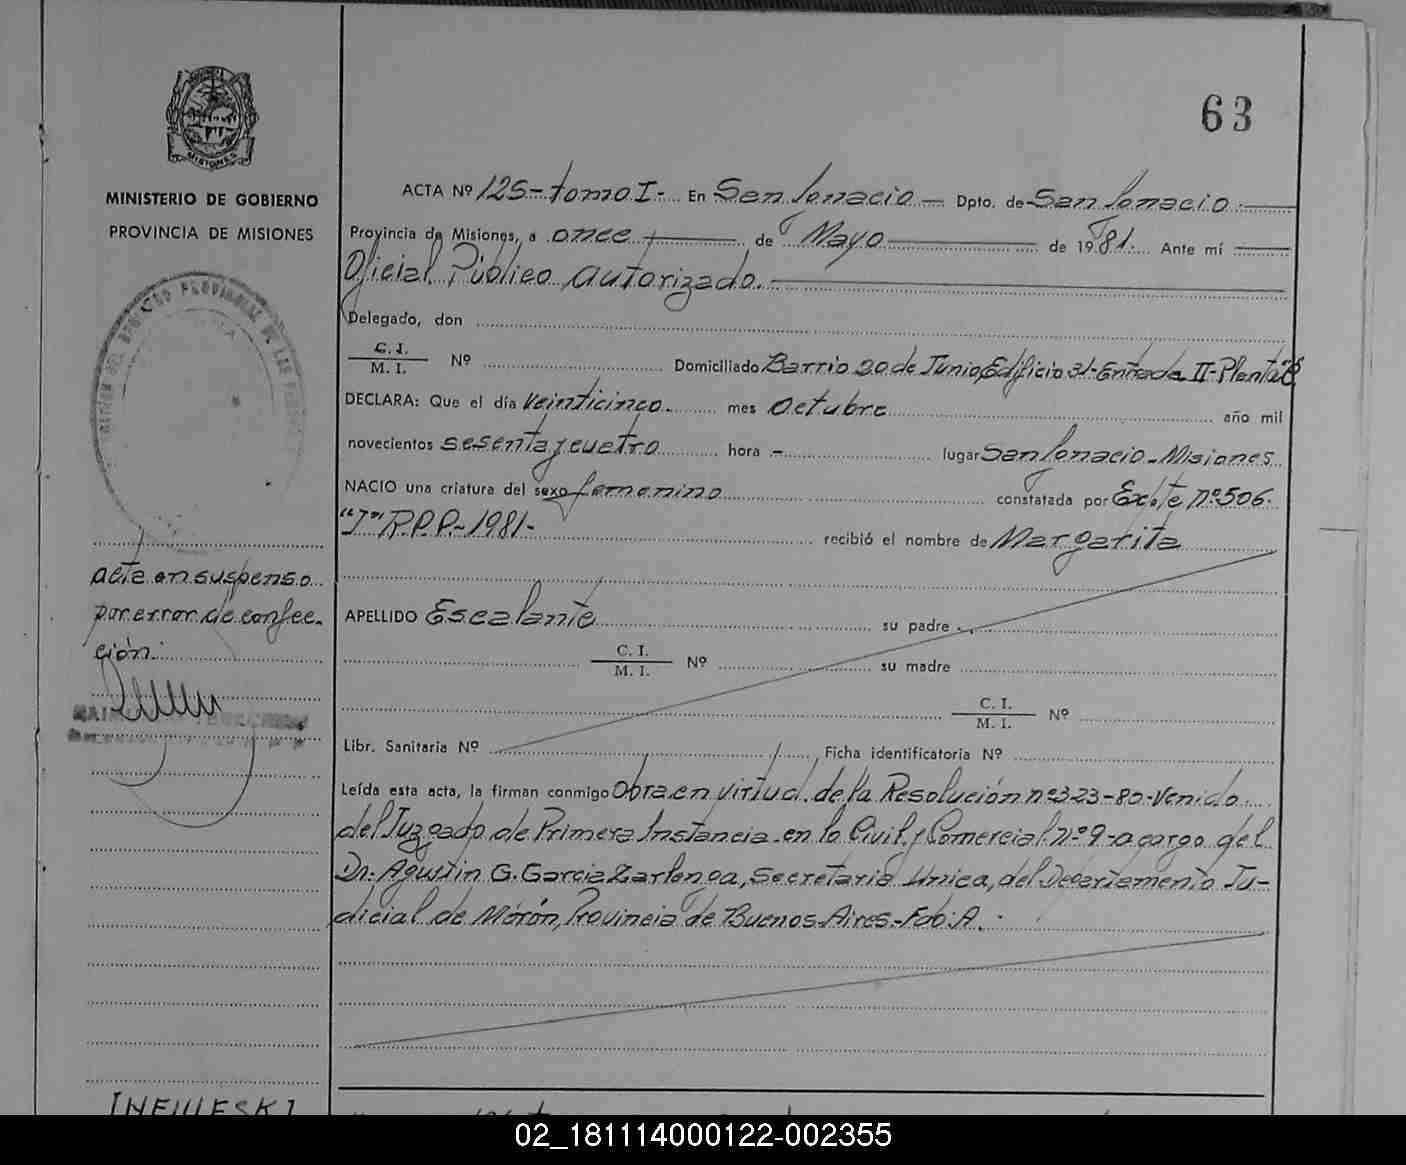 63
MISIONES
MINISTERIO DE GOBIERNO
PROVINCIA DE MISIONES
ACTA Nº 125-tomo I- En San Ignacio Dpto. de San Ignacio
Provincia de Misiones, a once de Mayo de 1981. Ante mí
Oficial Público autorizado.
Delegado, don
C. I.
M. I. Nº Domiciliado Barrio 20 de Junio, Edificio 31-Entrada II-Planta"B
DECLARA: Que el día veinticinco mes octubre año mil
novecientos sesenta y cuatro hora - lugar San Ignacio - Misiones
NACIO una criatura del sexo femenino constatada por Exp.te nº 506-
"I" R.P.P.-1981- recibió el nombre de Margarita
APELLIDO Escalante su padre
C. I.
M. I. Nº su madre
C. I.
M. I. Nº
Libr. Sanitaria Nº Ficha identificatoria Nº
Leída esta acta, la firman conmigo Obra en virtud de la Resolución nº 323-80-Venido
del Juzgado de Primera Instancia en lo Civil y Comercial nº 9-a cargo del
Dr. Agustin G. Garcia Zarlenga, Secretaria Unica, del Departamento Ju-
dicial de Morón, Provincia de Buenos Aires-Fdo: A.
acta en suspenso
por error de confec-
ción.
02_181114000122-002355